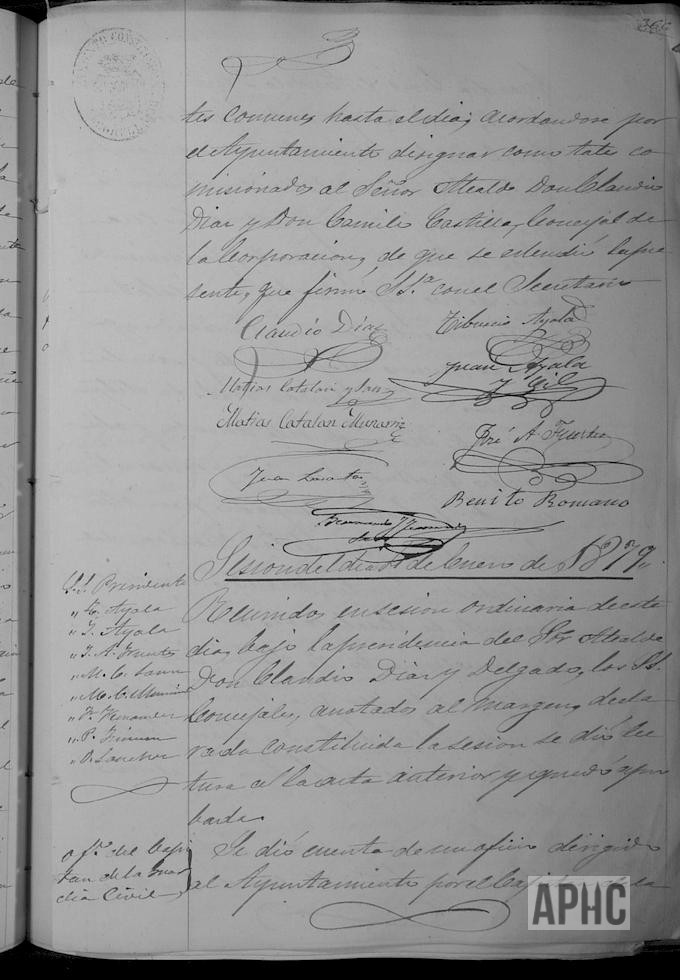 366
tes comunes hasta el dia; acordandose por
el Ayuntamiento designar como tales co
misionados al Señor Alcalde Don Claudio
Diaz y Don Camilo Castilla, Concejal de
la Corporacion, de que se estendió la pre
sente, que firmó S.S.ª con el Secretario
Claudio Diaz
Tiburcio Ayala
Juan Ayala
y Gil
Matias Catalan y
Matias Catalan Munarriz
José A. Fuertes
Juan
Benito Romano
Fernando
Sesion del dia de Enero de 1879,,
S.S. Presidente
" T. Ayala
" J. Ayala
" J. A. Fuertes
" M. C.
" M. C. Munarriz
" F. Fernandez
" P.
" Sanchez
Reunidos en sesion ordinaria de este
dia, bajo la presidencia del Sor Alcalde
Don Claudio Diaz y Delgado, los S.S.
Concejales, anotados al margen, decla
rada constituida la sesion se dió lec
tura al acta anterior y quedó apro
bada.
Of.º del Capi
tan de la Guar
dia Civil
Se dió cuenta de un oficio dirigido
al Ayuntamiento por el Capitan de la
APHC